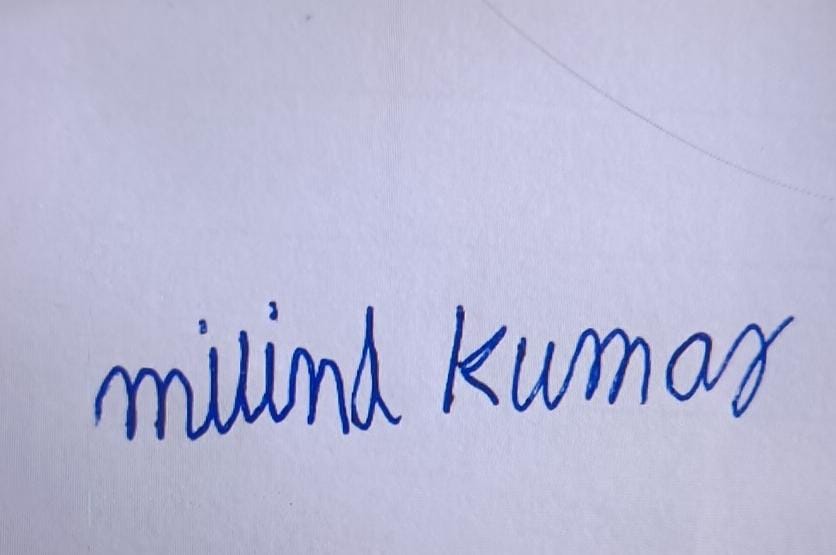 milind kumar